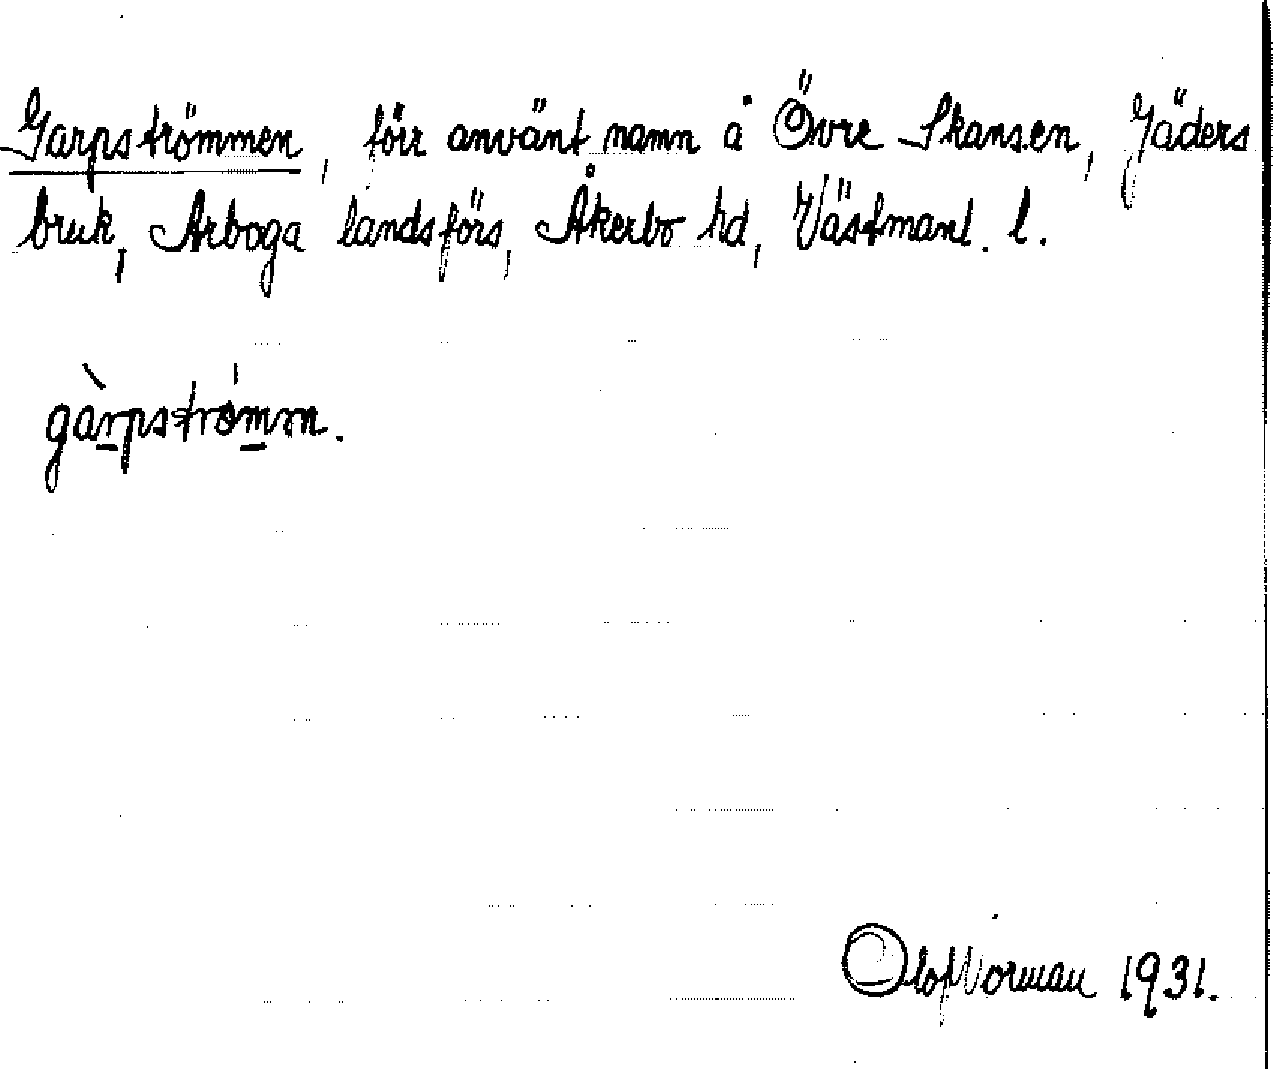 Garpströmmen, förr använt namn å Övre Skansen, Jäders
bruk, Arboga landsförs, Åkerbo hd, Västmanl. l.
gàrpströmm.
Olof Norman 1931.